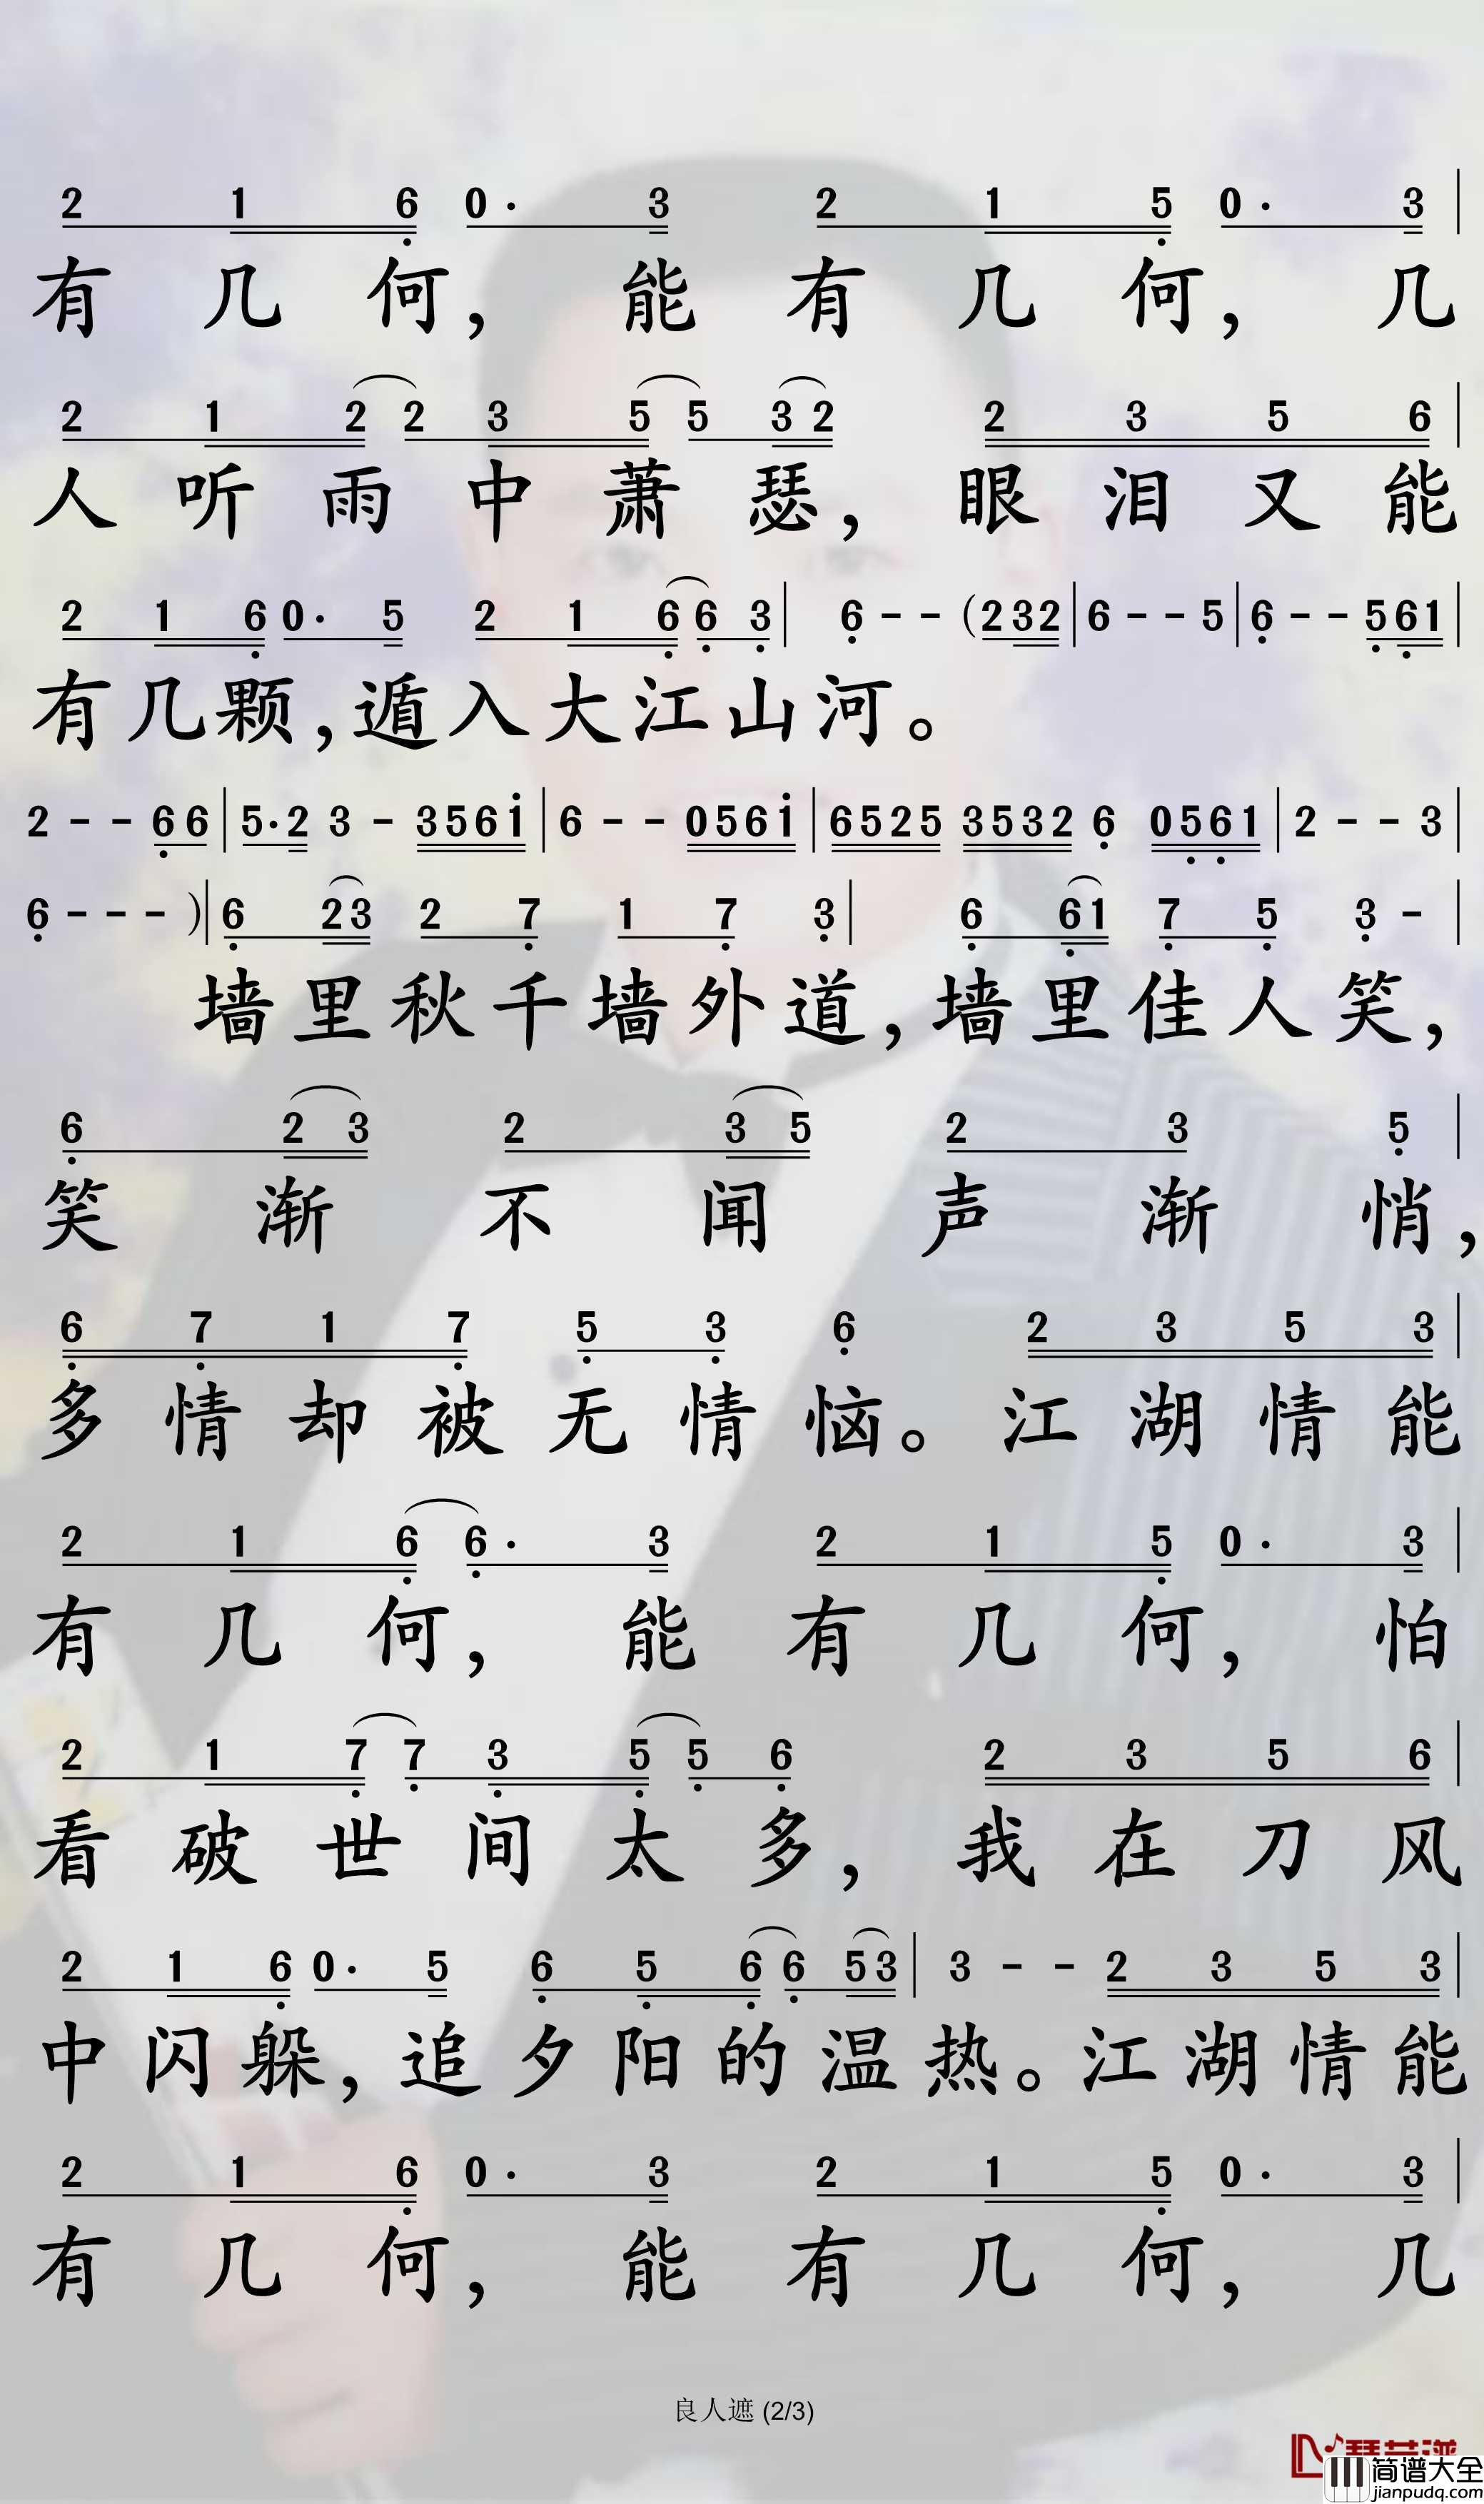 2 1 6 0· 3 2 1 5 0· 3 |
有 几 何， 能 有 几 何， 几
2 1 2 2 3 5 5 3 2 2 3 5 6 |
人 听 雨 中 萧 瑟， 眼 泪 又 能
2 1 6 0· 5 2 1 6 6 3 | 6 - - (2 3 2 | 6 - - 5 | 6 - - 5 6 1 |
有 几 颗， 遁 入 大 江 山 河。
2 - - 6 6 | 5· 2 3 - 3 5 6 1 | 6 - - 0 5 6 1 | 6 5 2 5 3 5 3 2 6 0 5 6 1 | 2 - - 3 |
6 - - - ) | 6 2 3 2 7 1 7 3 | 6 6 1 7 5 3 - |
墙 里 秋 千 墙 外 道， 墙 里 佳 人 笑，
6 2 3 2 3 5 2 3 5 |
笑 渐 不 闻 声 渐 悄，
6 7 1 7 5 3 6 2 3 5 3 |
多 情 却 被 无 情 恼。 江 湖 情 能
2 1 6 6· 3 2 1 5 0· 3 |
有 几 何， 能 有 几 何， 怕
2 1 7 7 3 5 5 6 2 3 5 6 |
看 破 世 间 太 多， 我 在 刀 风
2 1 6 0· 5 6 5 6 6 5 3 | 3 - - 2 3 5 3 |
中 闪 躲， 追 夕 阳 的 温 热。 江 湖 情 能
2 1 6 0· 3 2 1 5 0· 3 |
有 几 何， 能 有 几 何， 几
良人遮 (2/3)
简谱大全
jianpudq.com